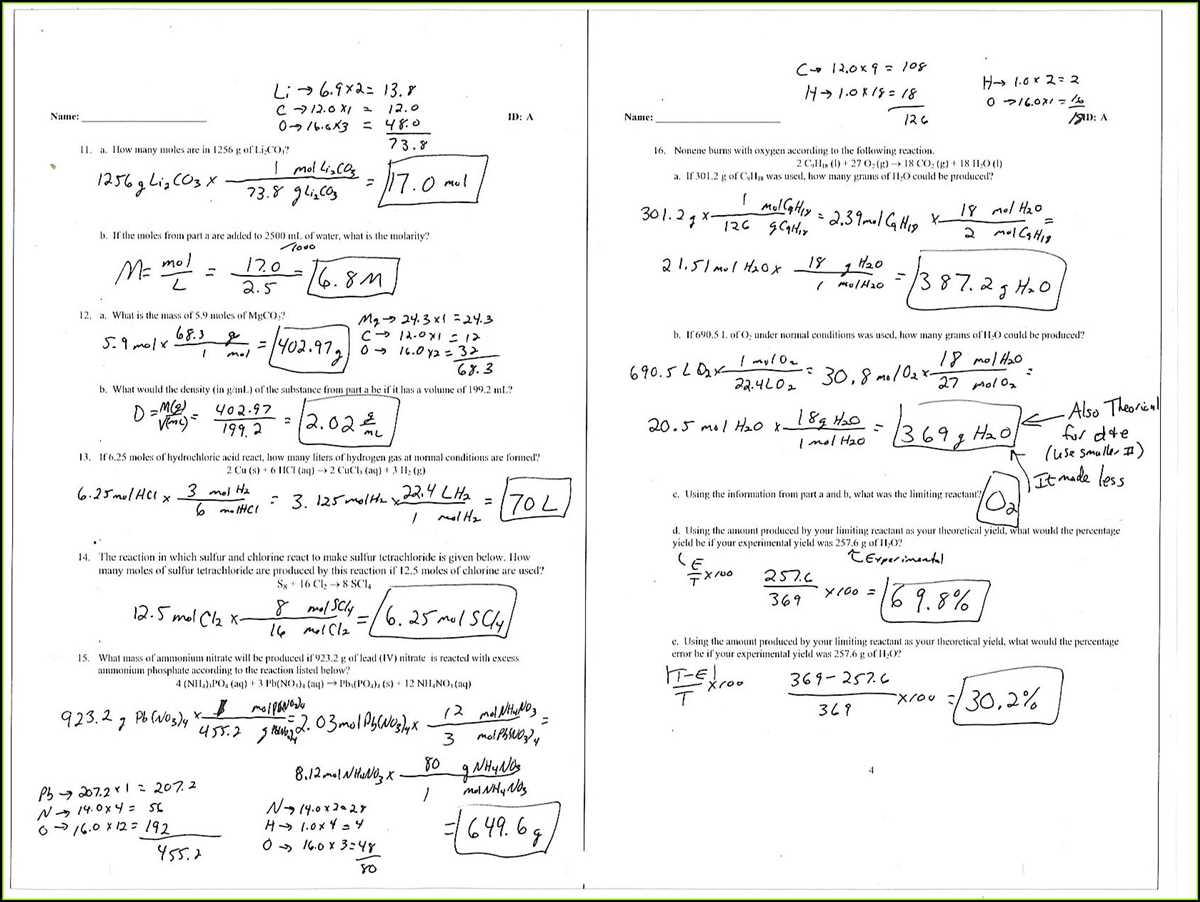 Li → 6.9×2 = 13.8
C → 12.0×1 = 12.0
O → 16.0×3 = 48.0
73.8
Name: ID: A
11. a. How many moles are in 1256 g of Li₂CO₃?
1256 g Li₂CO₃ × 1 mol Li₂CO₃ / 73.8 g Li₂CO₃ = 17.0 mol
b. If the moles from part a are added to 2500 mL of water, what is the molarity?
/1000
M = mol / L = 17.0 / 2.5 = 6.8 M
12. a. What is the mass of 5.9 moles of MgCO₂?
Mg → 24.3×1 = 24.3
C → 12.0×1 = 12
O → 16.0×2 = 32
68.3
5.9 mol × 68.3 g / 1 mol = 402.97 g
b. What would the density (in g/mL) of the substance from part a be if it has a volume of 199.2 mL?
D = M(g) / V(mL) = 402.97 / 199.2 = 2.02 g / mL
13. If 6.25 moles of hydrochloric acid react, how many liters of hydrogen gas at normal conditions are formed?
2 Cu (s) + 6 HCl (aq) → 2 CuCl₃ (aq) + 3 H₂ (g)
6.25 mol HCl × 3 mol H₂ / 6 mol HCl = 3.125 mol H₂ × 22.4 L H₂ / 1 mol H₂ = 70 L
14. The reaction in which sulfur and chlorine react to make sulfur tetrachloride is given below. How
many moles of sulfur tetrachloride are produced by this reaction if 12.5 moles of chlorine are used?
S₈ + 16 Cl₂ → 8 SCl₄
12.5 mol Cl₂ × 8 mol SCl₄ / 16 mol Cl₂ = 6.25 mol SCl₄
15. What mass of ammonium nitrate will be produced if 923.2 g of lead (IV) nitrate is reacted with excess
ammonium phosphate according to the reaction listed below?
4 (NH₄)₃PO₄ (aq) + 3 Pb(NO₃)₄ (aq) → Pb₃(PO₄)₄ (s) + 12 NH₄NO₃ (aq)
923.2 g Pb(NO₃)₄ × 1 mol Pb(NO₃)₄ / 455.2 g Pb(NO₃)₄ = 2.03 mol Pb(NO₃)₄ × 12 mol NH₄NO₃ / 3 mol Pb(NO₃)₄ =
8.12 mol NH₄NO₃ × 80 g NH₄NO₃ / 1 mol NH₄NO₃
= 649.6 g
Pb → 207.2×1 = 207.2
N → 14.0×4 = 56
O → 16.0×12 = 192
455.2
N → 14.0×2 = 28
H → 1.0×4 = 4
O → 16.0×3 = 48
80
C → 12.0×9 = 108
H → 1.0×18 = 18
126
H → 1.0×2 = 2
O → 16.0×1 = 16
18
Name: ID: A
16. Nonene burns with oxygen according to the following reaction.
2 C₉H₁₈ (l) + 27 O₂ (g) → 18 CO₂ (g) + 18 H₂O (l)
a. If 301.2 g of C₉H₁₈ was used, how many grams of H₂O could be produced?
301.2 g × 1 mol C₉H₁₈ / 126 g C₉H₁₈ = 2.39 mol C₉H₁₈ × 18 mol H₂O / 2 mol C₉H₁₈ =
21.51 mol H₂O × 18 g H₂O / 1 mol H₂O = 387.2 g H₂O
b. If 690.5 L of O₂ under normal conditions was used, how many grams of H₂O could be produced?
690.5 L O₂ × 1 mol O₂ / 22.4 L O₂ = 30.8 mol O₂ × 18 mol H₂O / 27 mol O₂ =
20.5 mol H₂O × 18 g H₂O / 1 mol H₂O = 369 g H₂O
Also Theorical
for d+e
(use smaller #)
It made less
c. Using the information from part a and b, what was the limiting reactant? O₂
d. Using the amount produced by your limiting reactant as your theoretical yield, what would the percentage
yield be if your experimental yield was 257.6 g of H₂O?
Experimental
E / T ×100 257.6 / 369 ×100 = 69.8%
e. Using the amount produced by your limiting reactant as your theoretical yield, what would the percentage
error be if your experimental yield was 257.6 g of H₂O?
|T-E| / T ×100 369-257.6 / 369 ×100 = 30.2%
4